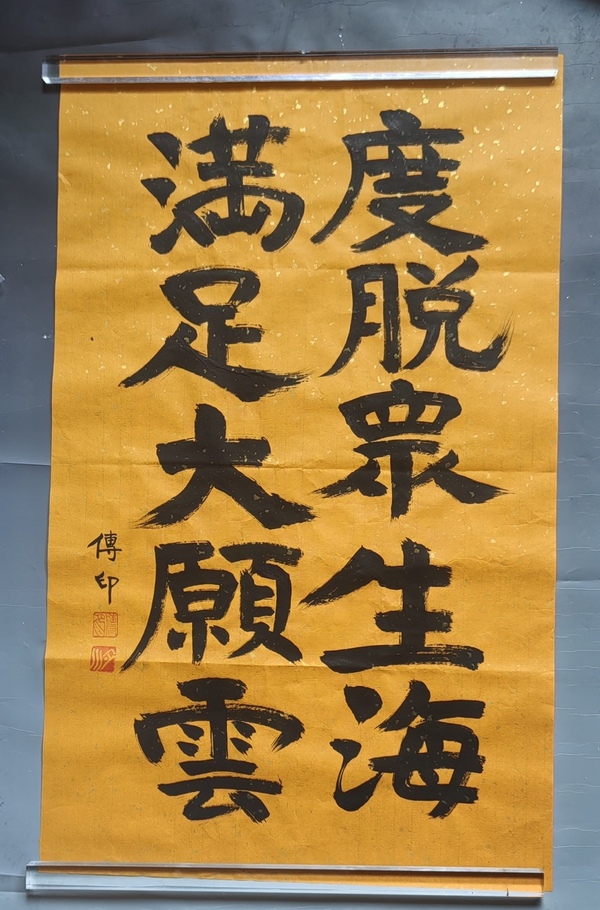 度脱眾生海
満足大願雲
傳印